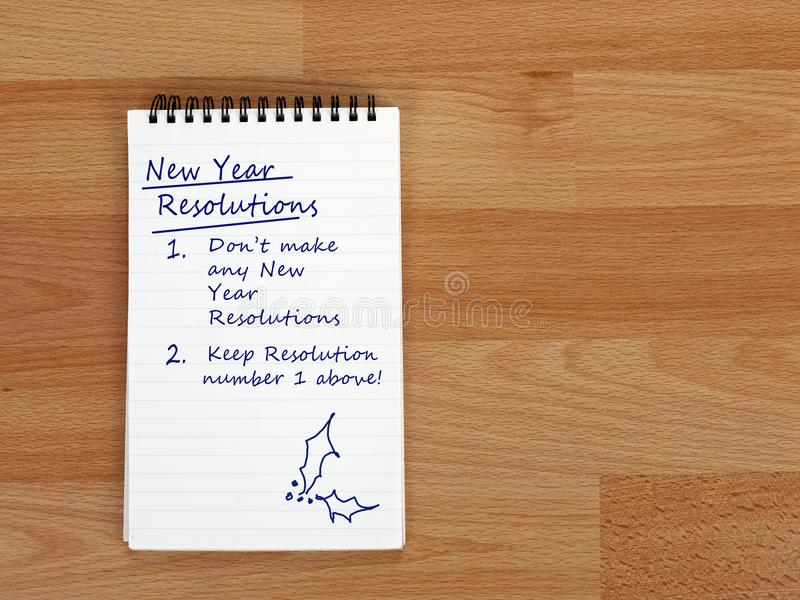 New Year
Resolutions
1. Don't make
any New
Year
Resolutions
2. Keep Resolution
number 1 above!
dreamstime